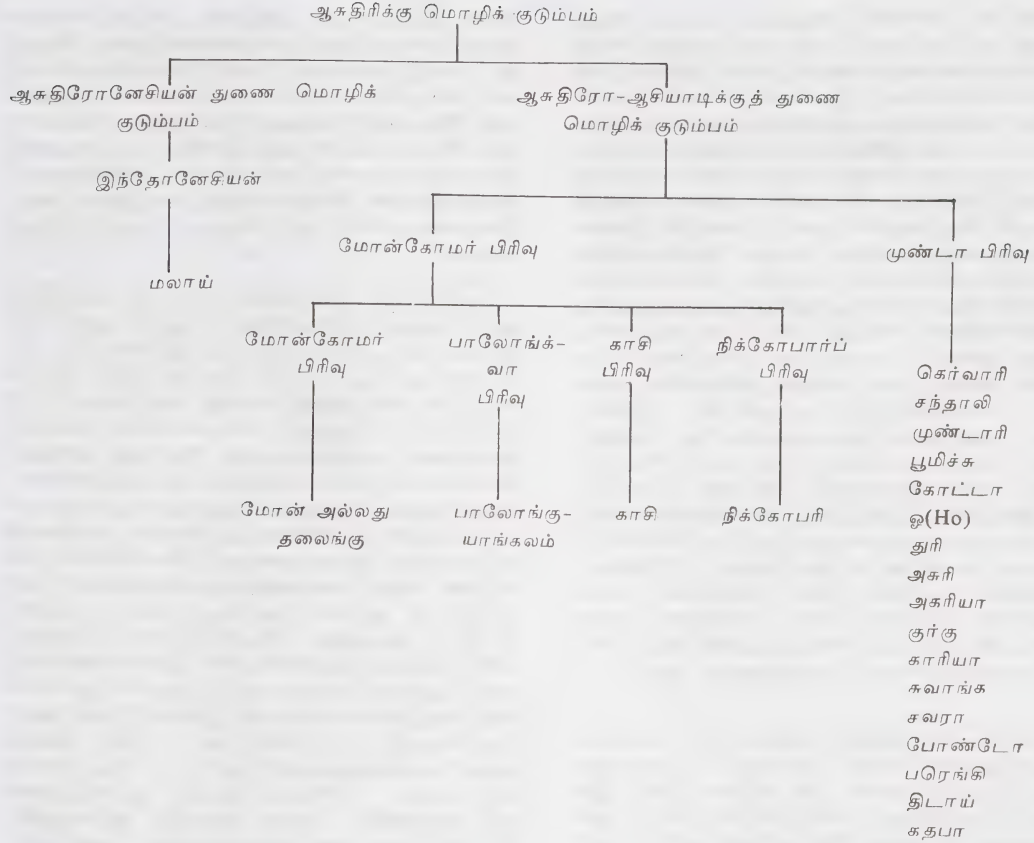 ஆசுதிரிக்கு மொழிக் குடும்பம்
ஆசுதிரோனேசியன் துணை மொழிக்
குடும்பம்
ஆசுதிரோ-ஆசியாடிக்குத் துணை
மொழிக் குடும்பம்
இந்தோனேசியன்
மலாய்
மோன்கோமர் பிரிவு
முண்டா பிரிவு
மோன்கோமர்
பிரிவு
பாலோங்க்-
வா
பிரிவு
காசி
பிரிவு
நிக்கோபார்ப்
பிரிவு
மோன் அல்லது
தலைங்கு
பாலோங்கு-
யாங்கலம்
காசி
நிக்கோபரி
கெர்வாரி
சந்தாலி
முண்டாரி
பூமிச்சு
கோட்டா
ஓ(Ho)
துரி
அசுரி
அகரியா
குர்கு
காரியா
சுவாங்க
சவரா
போண்டோ
பரெங்கி
திடாய்
கதபா